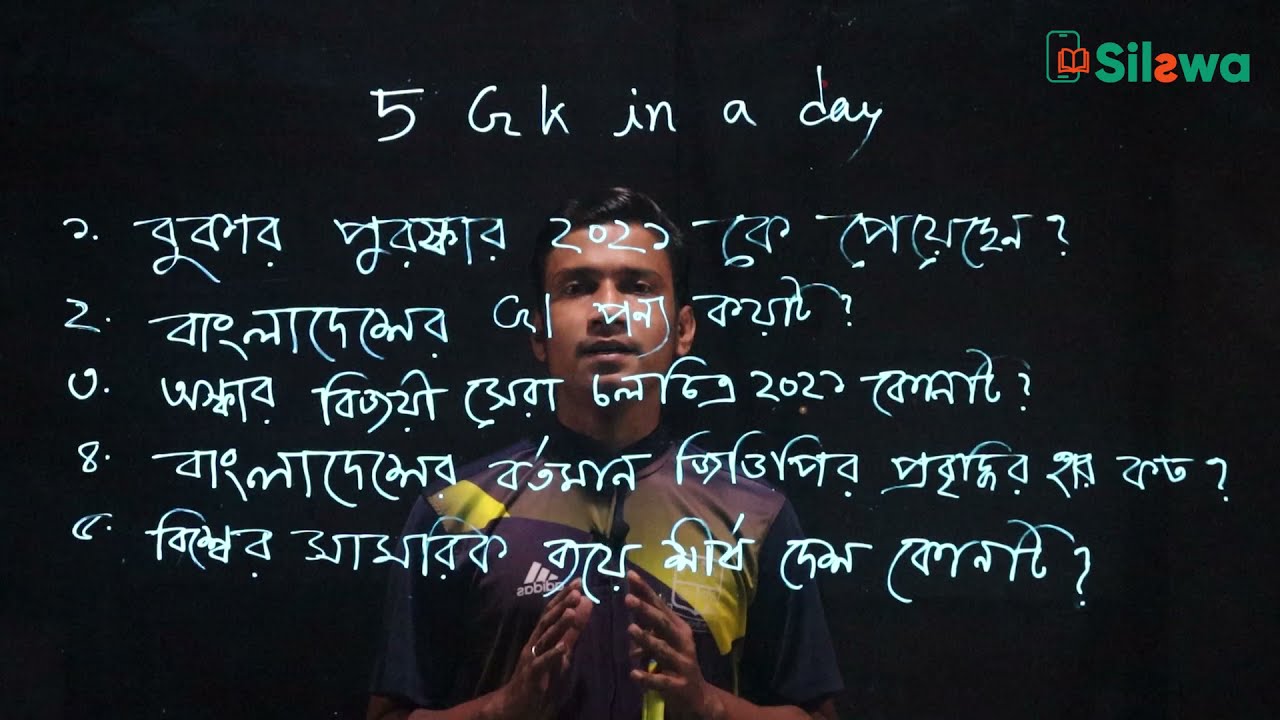 Silswa
5 GK in a day
১. বুকার পুরস্কার ২০২১ কে পেয়েছেন?
২. বাংলাদেশের GI পন্য কয়টি?
৩. অস্কার বিজয়ী সেরা চলচিত্র ২০২১ কোনটি?
৪. বাংলাদেশের বর্তমান জিডিপির প্রবৃদ্ধির হার কত?
৫. বিশ্বের সামরিক ব্যয়ে শীর্ষ দেশ কোনটি?
adidas